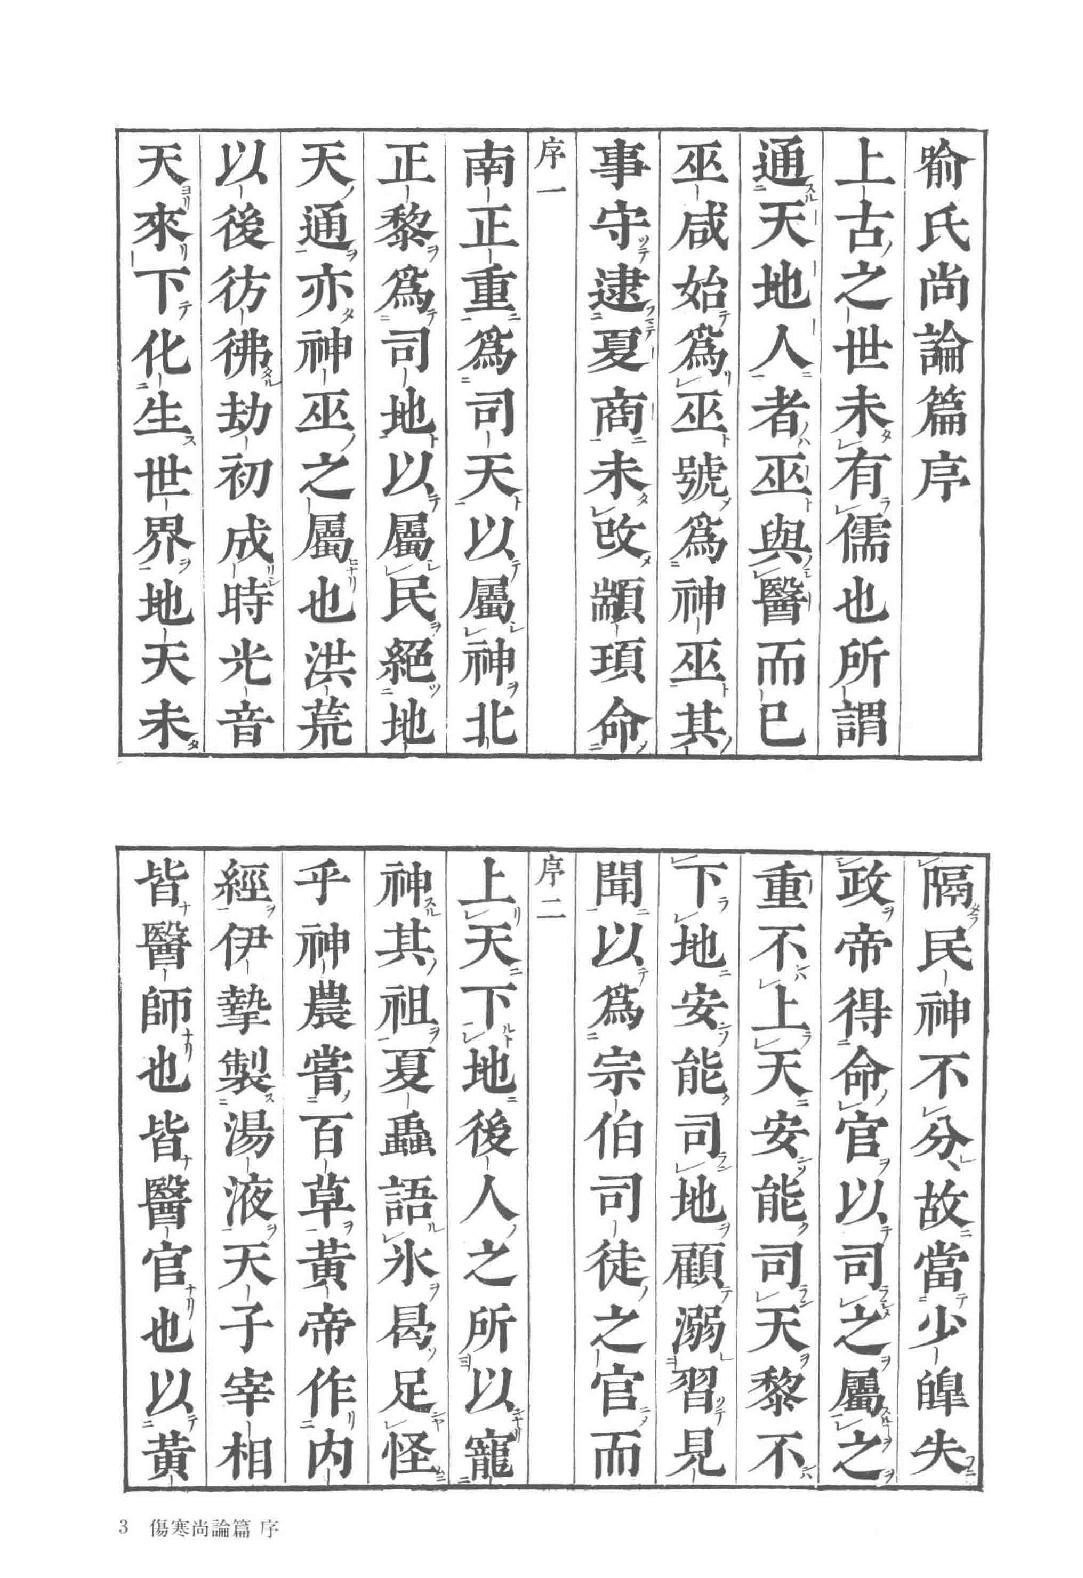 喻氏尚論篇序
上古之世未有儒也所謂
通天地人者巫與醫而已
巫咸始爲巫號爲神巫其
事守逮夏商未改顓頊命
序一
南正重爲司天以屬神北
正黎爲司地以屬民絕地
天通亦神巫之屬也洪荒
以後彷彿劫初成時光音
天來下化生世界地天未
隔民神不分故當少皞失
政帝得命官以司之屬之
重不上天安能司天黎不
下地安能司地顧溺習見
聞以爲宗伯司徒之官而
序二
上天下地後人之所以寵
神其祖夏蟲語氷曷足怪
乎神農嘗百草黃帝作內
經伊摯製湯液天子宰相
皆醫師也皆醫官也以黃
3 傷寒尚論篇 序